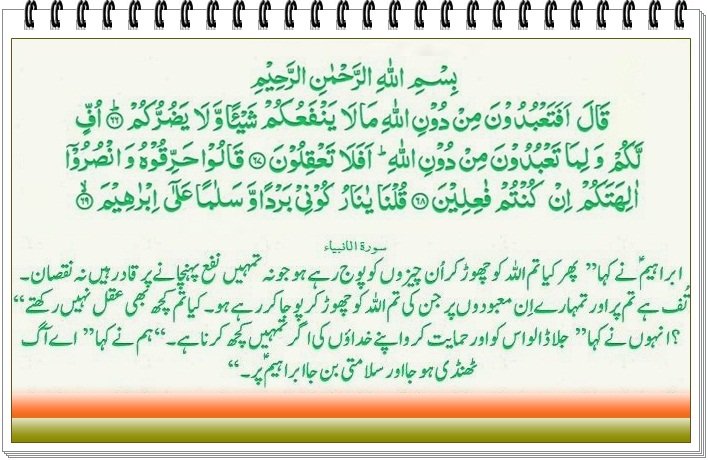 بِسْمِ اللهِ الرَّحْمٰنِ الرَّحِيْمِ
قَالَ اَفَتَعْبُدُوْنَ مِنْ دُوْنِ اللهِ مَا لَا يَنْفَعُكُمْ شَيْئًا وَّ لَا يَضُرُّكُمْ ؕ‏﴿۶۶﴾ اُفٍّ
لَّكُمْ وَ لِمَا تَعْبُدُوْنَ مِنْ دُوْنِ اللهِ ؕ اَفَلَا تَعْقِلُوْنَ ﴿۶۷﴾ قَالُوْا حَرِّقُوْهُ وَ انْصُرُوْۤا
اٰلِهَتَكُمْ اِنْ كُنْتُمْ فٰعِلِيْنَ ﴿۶۸﴾ قُلْنَا يٰنَارُ كُوْنِيْ بَرْدًا وَّ سَلٰمًا عَلٰۤى اِبْرٰهِيْمَ ۙ﴿۶۹﴾
سورة الانبیاء
ابراہیمؑ نے کہا ”پھر کیا تم اللہ کو چھوڑ کر اُن چیزوں کو پوج رہے ہو جو نہ تمہیں نفع پہنچانے پر قادر ہیں نہ نقصان۔
تُف ہے تم پر اور تمہارے اِن معبودوں پر جن کی تم اللہ کو چھوڑ کر پوجا کر رہے ہو۔ کیا تم کچھ بھی عقل نہیں رکھتے“
؟ انہوں نے کہا ”جلا ڈالو اس کو اور حمایت کرو اپنے خداؤں کی اگر تمہیں کچھ کرنا ہے۔“ ہم نے کہا ”اے آگ
ٹھنڈی ہو جا اور سلامتی بن جا ابراہیمؑ پر۔“